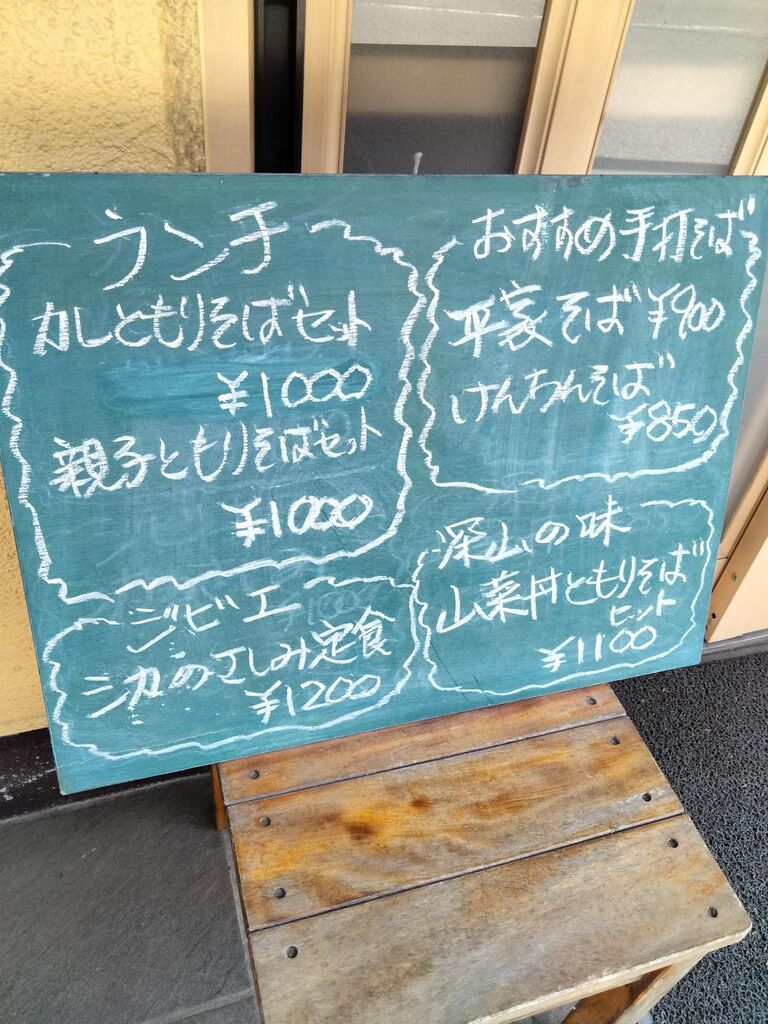 ランチ
カレともりそばセット
¥1000
親子ともりそばセット
¥1000
ジビエ
シカのさしみ定食
¥1200
おすすめ手打そば
平家そば ¥900
けんちんそば
¥850
深山の味
山菜丼ともりそば
セット
¥1100